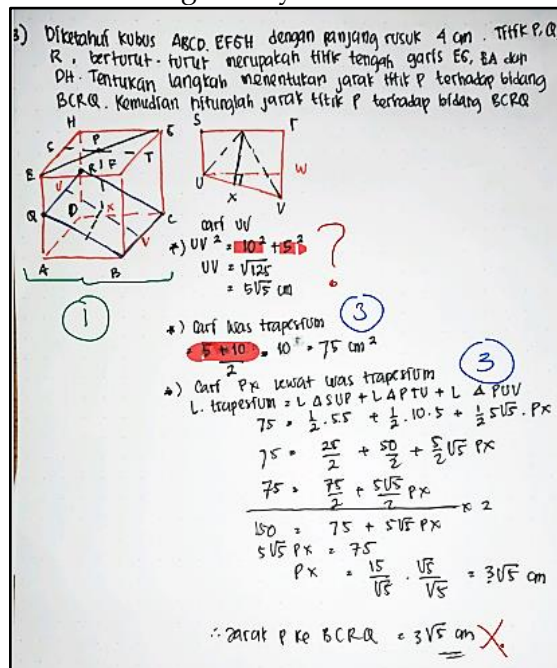 3) Diketahui kubus ABCD. EFGH dengan panjang rusuk 4 cm. Titik P, Q
R, berturut-turut merupakan titik tengah garis EG, EA dan
DH. Tentukan langkah menentukan jarak titik P terhadap bidang
BCRQ. Kemudian hitunglah jarak titik P terhadap bidang BCRQ
H
G
S
P
T
E
R
F
U
Q
D
X
C
V
A
B
S
T
U
W
X
V
1
cari UV
*) UV² = 10² + 5²
UV = √125
= 5√5 cm
?
*) Cari luas trapesium
3
5 + 10
2
= 75 cm²
*) Cari PX lewat luas trapesium
3
L. trapesium = L ΔSUP + L ΔPTU + L ΔPUV
75 = 1/2 . 5.5 + 1/2 . 10.5 + 1/2 5√5 . PX
75 = 25/2 + 50/2 + 5/2 √5 PX
75 = 75/2 + 5√5/2 PX
x 2
150 = 75 + 5√5 PX
5√5 PX = 75
PX = 15/√5 . √5/√5 = 3√5 cm
∴ Jarak P ke BCRQ = 3√5 cm X